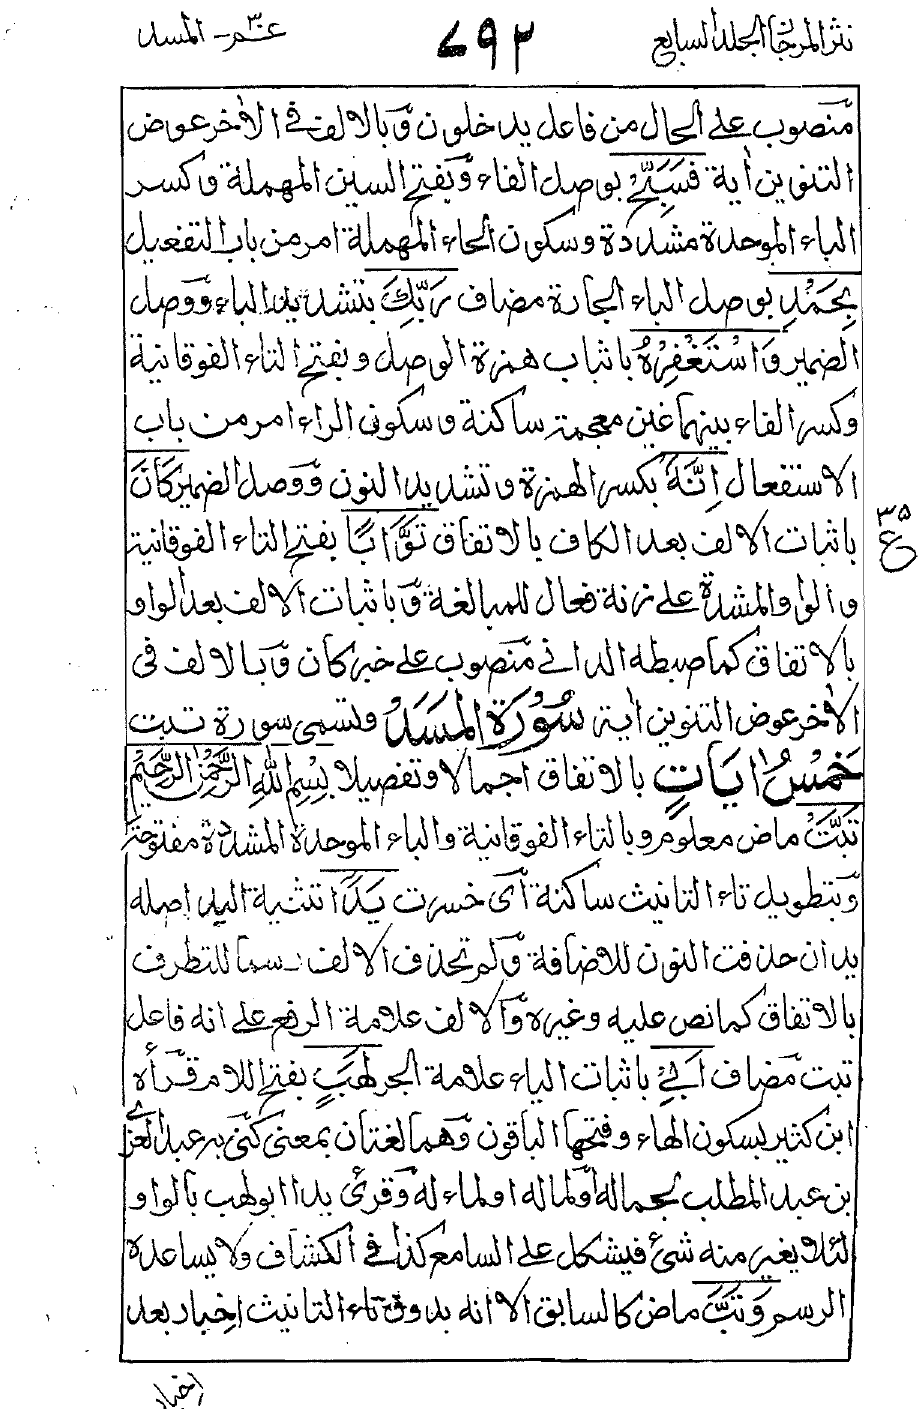 نثر المرجان الجلد السابع
٧٩٢
عـم - المسد
منصوب على الحال من فاعل يدخلون وبالالف في الاخر عوض
التنوين اية فَسَبِّحْ بوصل الفاء وبفتح السين المهملة وكسر
الباء الموحدة مشددة وسكون الحاء المهملة امر من باب التفعيل
بِحَمْدِ بوصل الباء الجارة مضاف رَبِّكَ بتشديد الباء ووصل
الضمير وَاسْتَغْفِرْهُ باثبات همزة الوصل وبفتح التاء الفوقانية
وكسر الفاء بينهما غين معجمة ساكنة وسكون الراء امر من باب
الاستفعال اِنَّهُ بكسر الهمزة وتشديد النون ووصل الضمير كَانَ
باثبات الالف بعد الكاف بالاتفاق تَوَّابًا بفتح التاء الفوقانية
والواو المشددة على زنة فعال للمبالغة وباثبات الالف بعد الواو
بالاتفاق كما ضبطه الداني منصوب على خبر كان وبالالف في
الاخر عوض التنوين اية سُوْرَةُ الْمَسَدْ وتسمى سورة تبت
خَمْسُ اٰيَاتٍ بالاتفاق اجمالا وتفصيلا بِسْمِ اللّٰهِ الرَّحْمٰنِ الرَّحِيْمِ
تَبَّتْ ماض معلوم وبالتاء الفوقانية والباء الموحدة المشددة مفتوحة
وبتطويل تاء التانيث ساكنة أى خسرت يَدَا تثنية اليد اصله
يدان حذفت النون للاضافة ولم تحذف الالف رسما للتطرف
بالاتفاق كما نص عليه وغيره والالف علامة الرفع على انه فاعل
تبت مضاف اَبِيْ باثبات الياء علامة الجر لَهَبٍ بفتح اللام قرأه
ابن كثير بسكون الهاء وفتحها الباقون وهما لغتان بمعنى كنى به عبد العزى
بن عبد المطلب لجماله أولماله اولماء له وقرئ يدا ابو لهب بالواو
لئلا يغير منه شئ فيشكل على السامع كذا في الكشاف ولا يساعده
الرسم وَتَبَّ ماض كالسابق الا انه بدون تاء التانيث اخبار بعد
٣٥
ع
اخبار